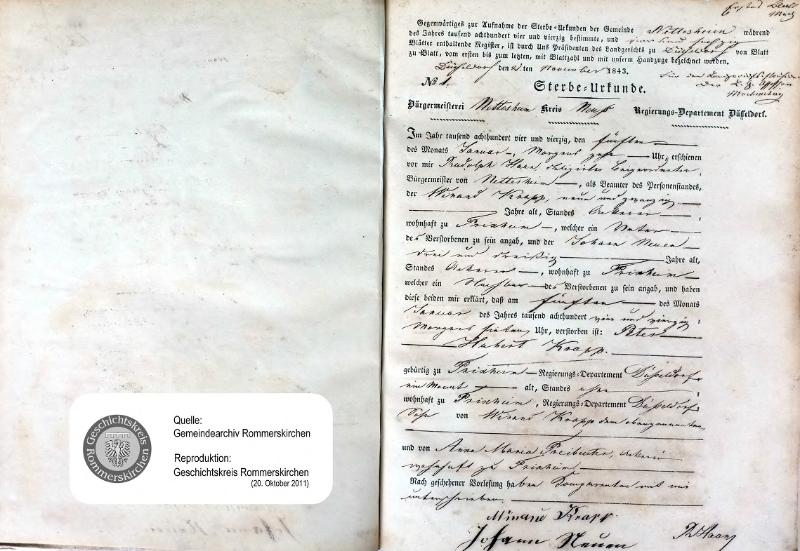 Gegenwärtiges zur Aufnahme der Sterbe-Urkunden der Gemeinde Nettesheim während
des Jahres tausend achthundert vier und vierzig bestimmte, und
Blätter enthaltende Register, ist durch Uns Präsidenten des Landgerichts zu Düsseldorf von Blatt
zu Blatt, vom ersten bis zum letzten, mit Blattzahl und mit unserm Handzuge bezeichnet worden.
Düsseldorf den ten November 1843.
No. 1.
Sterbe-Urkunde.
Bürgermeisterei Nettesheim Kreis Neuß Regierungs-Departement Düsseldorf.
Im Jahr tausend achthundert vier und vierzig, den fünften
des Monats Januar, Morgens zehn Uhr, erschienen
vor mir
Bürgermeister von Nettesheim, als Beamter des Personenstandes,
der Winand Krapp, neun und zwanzig
Jahre alt, Standes Ackerer,
wohnhaft zu Frixheim, welcher ein Vater
des Verstorbenen zu sein angab, und der Johann Neuen
drei und dreißig Jahre alt,
Standes Ackerer, wohnhaft zu Frixheim
welcher ein Nachbar des Verstorbenen zu sein angab, und haben
diese beiden mir erklärt, daß am fünften des Monats
Januar des Jahres tausend achthundert vier und vierzig,
Morgens sieben Uhr, verstorben ist: Peter
Hubert Krapp.
gebürtig zu Frixheim Regierungs-Departement Düsseldorf
ein Monat alt, Standes ohne
wohnhaft zu Frixheim, Regierungs-Departement Düsseldorf
Sohn von Winand Krapp dem obengenannten
und von Anna Maria
wohnhaft zu Frixheim
Nach geschehener Vorlesung haben Comparenten mit mir
unterschrieben.
Winand Krapp
Johann Neuen
Geschichtskreis
Rommerskirchen
Quelle:
Gemeindearchiv Rommerskirchen
Reproduktion:
Geschichtskreis Rommerskirchen
(20. Oktober 2011)